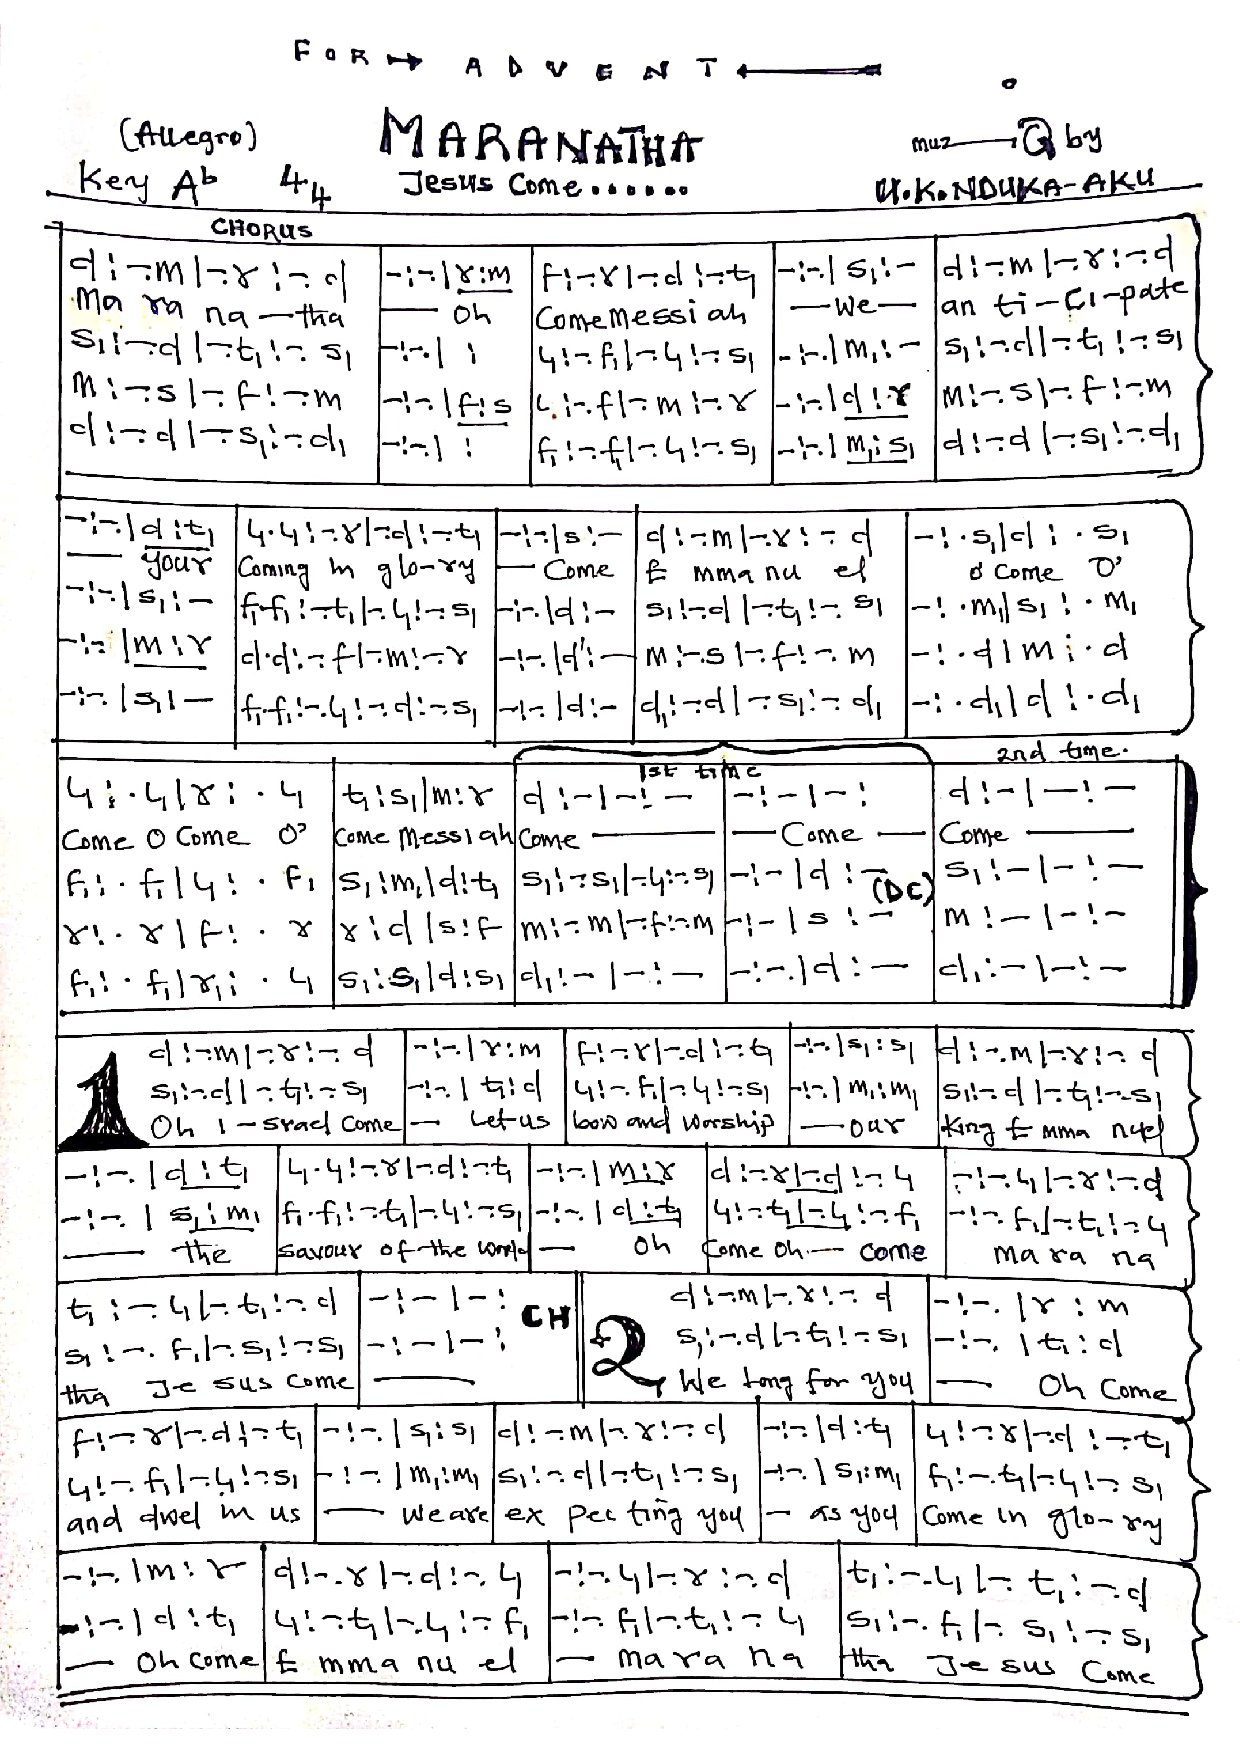 FOR → ADVENT
(Allegro) MARANATHA muz by
Key Ab 4/4 Jesus Come...... U.K.NDUKA-AKU
CHORUS
d :-.m|-.r :-.d | -:-.|r:m | f:-.r|-.d:-.t₁ | -:-.|s₁:- | d:-.m|-.r:-.d
Ma ra na — tha — Oh Come Messiah — We — an ti-ci-pate
s₁:-.d|-.t₁:-.s₁ | -:-.| : | l₁:-.f₁|-.l₁:-.s₁ | -:-.|m₁:- | s₁:-.d|-.t₁:-.s₁
m:-.s|-.f:-.m | -:-.|f:s | l₁:-.f|-.m:-.r | -:-.|d:r | m:-.s|-.f:-.m
d:-.d|-.s₁:-.d₁ | -:-.| : | f₁:-.f₁|-.l₁:-.s₁ | -:-.|m₁:s₁ | d:-.d|-.s₁:-.d₁
-:-.|d:t₁ | l₁.l₁:-.r|-.d:-.t₁ | -:-.|s:- | d:-.m|-.r:-.d | -:.s₁|d:.s₁
— your Coming in glo-ry — Come E mma nu el O' Come O'
-:-.|s₁:- | f₁.f₁:-.t₁|-.l₁:-.s₁ | -:-.|d:- | s₁:-.d|-.t₁:-.s₁ | -:.m₁|s₁:.m₁
-:-.|m:r | d.d:-.f|-.m:-.r | -:-.|d':- | m:-.s|-.f:-.m | -:.d|m:.d
-:-.|s₁|- | f₁.f₁:-.l₁:-.d:-.s₁ | -:-.|d:- | d₁:-.d|-.s₁:-.d₁ | -:.d₁|d:.d₁
1st time 2nd time.
l₁:.l₁|r:.l₁ | t₁:s₁|m:r | d:-|-:- | -:-|-: | d:-|-:-
Come O Come O' Come Messiah Come — — Come — Come —
f₁:.f₁|l₁:.f₁ | s₁:m₁|d:t₁ | s₁:-.s₁|-.l₁:-.s₁ | -:-|d:- (DC) | s₁:-|-:-
r:.r|f:.r | r:d|s:f | m:-.m|-.f:-.m | -:-|s:- | m:-|-:-
f₁:.f₁|r₁:.l₁ | s₁:s₁|d:s₁ | d₁:-|-:- | -:-.|d:- | d₁:-|-:-
1 d:-.m|-.r:-.d | -:-.|r:m | f:-.r|-.d:-.t₁ | -:-.|s₁:s₁ | d:-.m|-.r:-.d
s₁:-.d|-.t₁:-.s₁ | -:-.|t₁:d | l₁:-.f₁|-.l₁:-.s₁ | -:-.|m₁:m₁ | s₁:-.d|-.t₁:-.s₁
Oh I-srael Come — Let us bow and worship — our King E mma nuel
-:-.|d:t₁ | l₁.l₁:-.r|-.d:-.t₁ | -:-.|m:r | d:-.r|-.d:-.l₁ | -:-.l₁|-.r:-.d
-:-.|s₁:m₁ | f₁.f₁:-.t₁|-.l₁:-.s₁ | -:-.|d:t₁ | l₁:-.t₁|-.l₁:-.f₁ | -:-.f₁|-.t₁:-.l₁
— the savour of the world — Oh Come Oh — come mara na
t₁:-.l₁|-.t₁:-.d | -:-|-: CH 2 d:-.m|-.r:-.d | -:-.|r:m
s₁:-.f₁|-.s₁:-.s₁ | -:-|-: s₁:-.d|-.t₁:-.s₁ | -:-.|t₁:d
tha Je sus come — We long for you — Oh Come
f:-.r|-.d:-.t₁ | -:-.|s₁:s₁ | d:-.m|-.r:-.d | -:-.|d:t₁ | l₁:-.r|-.d:-.t₁
l₁:-.f₁|-.l₁:-.s₁ | -:-.|m₁:m₁ | s₁:-.d|-.t₁:-.s₁ | -:-.|s₁:m₁ | f₁:-.t₁|-.l₁:-.s₁
and dwel in us — We are ex pec ting you — As you Come in glo-ry
-:-.|m:r | d:-.r|-.d:-.l₁ | -:-.l₁|-.r:-.d | t₁:-.l₁|-.t₁:-.d
-:-.|d:t₁ | l₁:-.t₁|-.l₁:-.f₁ | -:-.f₁|-.t₁:-.l₁ | s₁:-.f₁|-.s₁:-.s₁
— Oh Come E mma nu el — mara na tha Je sus Come